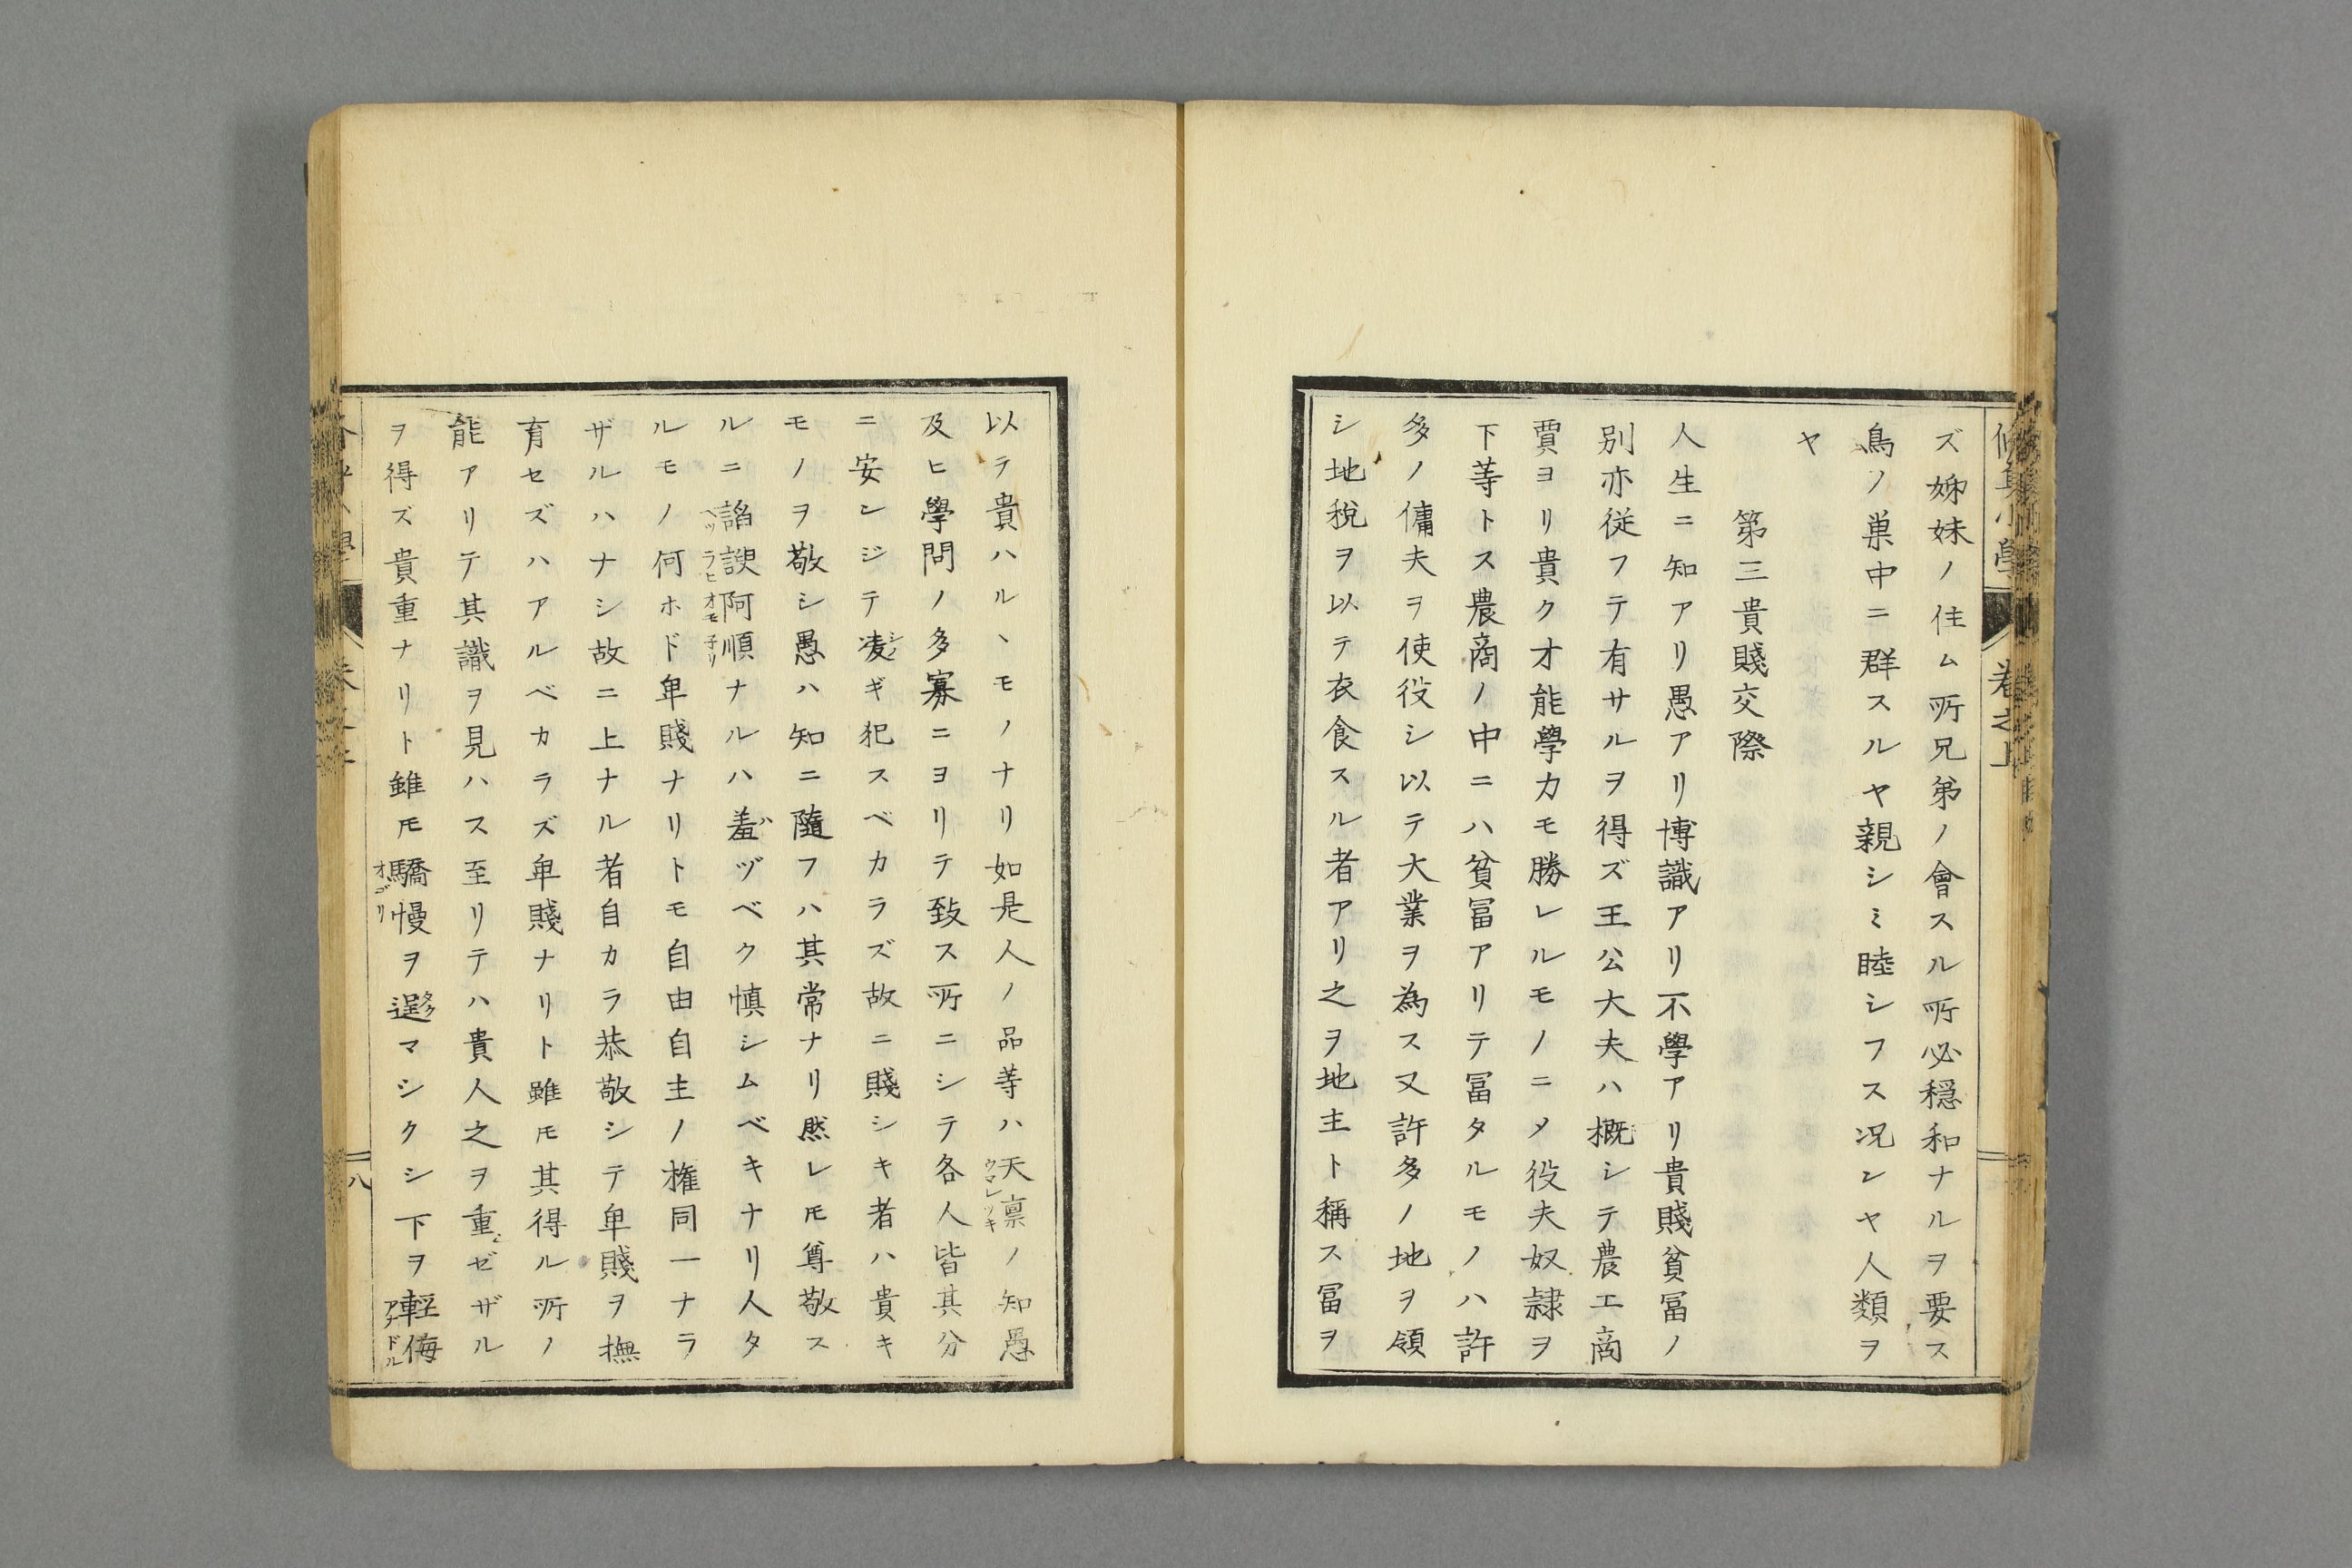 ズ姊妹ノ住ム所兄弟ノ會スル所必穏和ナルヲ要ス
鳥ノ巣中ニ群スルヤ親シミ睦シフス况ンヤ人類ヲ
ヤ
第三貴賤交際
人生ニ知アリ愚アリ博識アリ不學アリ貴賤貧冨ノ
別亦従フテ有サルヲ得ズ王公大夫ハ概シテ農工商
賈ヨリ貴クオ能學力モ勝レルモノニメ役夫奴隷ヲ
下等トス農商ノ中ニハ貧冨アリテ冨タルモノハ許
多ノ傭夫ヲ使役シ以テ大業ヲ為ス又許多ノ地ヲ領
シ地税ヲ以テ衣食スル者アリ之ヲ地主ト稱ス冨ヲ
卷之上
以テ貴ハルヽモノナリ如是人ノ品等ハ天禀ノ知愚
ウマレツキ
及ヒ學問ノ多寡ニヨリテ致ス所ニシテ各人皆其分
ニ安ンジテ凌ギ犯スベカラズ故ニ賤シキ者ハ貴キ
シノ
モノヲ敬シ愚ハ知ニ隨フハ其常ナリ然レ𪜈尊敬ス
ルニ諂諛阿順ナルハ羞ヅベク慎シムベキナリ人タ
ヘツラヒオモ子リ
ハ
ルモノ何ホド卑賤ナリトモ自由自主ノ権同一ナラ
ザルハナシ故ニ上ナル者自カラ恭敬シテ卑賤ヲ撫
育セズハアルベカラズ卑賤ナリト雖𪜈其得ル所ノ
能アリテ其識ヲ見ハス至リテハ貴人之ヲ重ゼザル
ヲ得ズ貴重ナリト雖𪜈驕慢ヲ逞マシクシ下ヲ輕侮
オゴリ
タク
アナドル
八